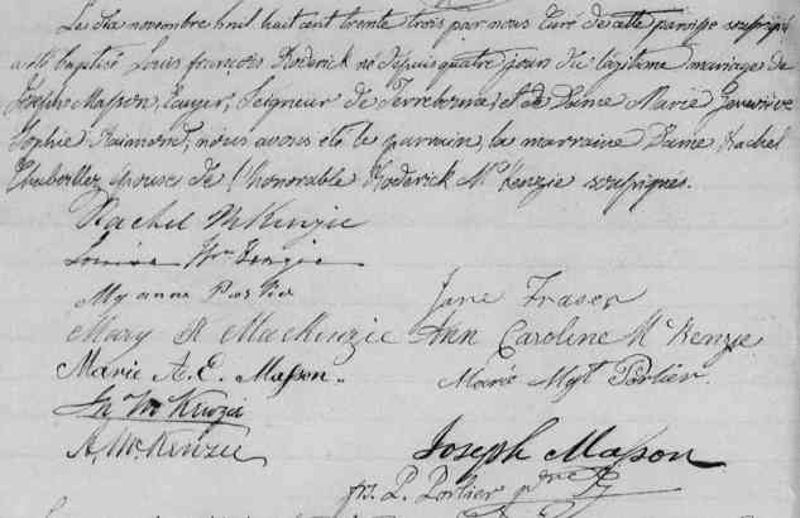 Le dix novembre mil huit cent trente trois par nous Curé de cette paroisse soussigné
a été baptisé Louis François Roderick né depuis quatre jours du légitime mariage de
Joseph Masson, Ecuyer, Seigneur de Terrebonne, et de Dame Marie Genevieve
Sophie Raimond, nous avons été le parrain, la marraine Dame Rachel
Chaboillez épouse de l'honorable Roderick McKenzie soussignés.
Rachel McKenzie
Louisa McKenzie
Jane Fraser
Mary R MacKenzie Ann Caroline McKenzie
Marie A. E. Masson.
Marie Mgt Porlier.
Jn McKenzie
A. McKenzie
Joseph Masson
frs. P. Porlier ptre